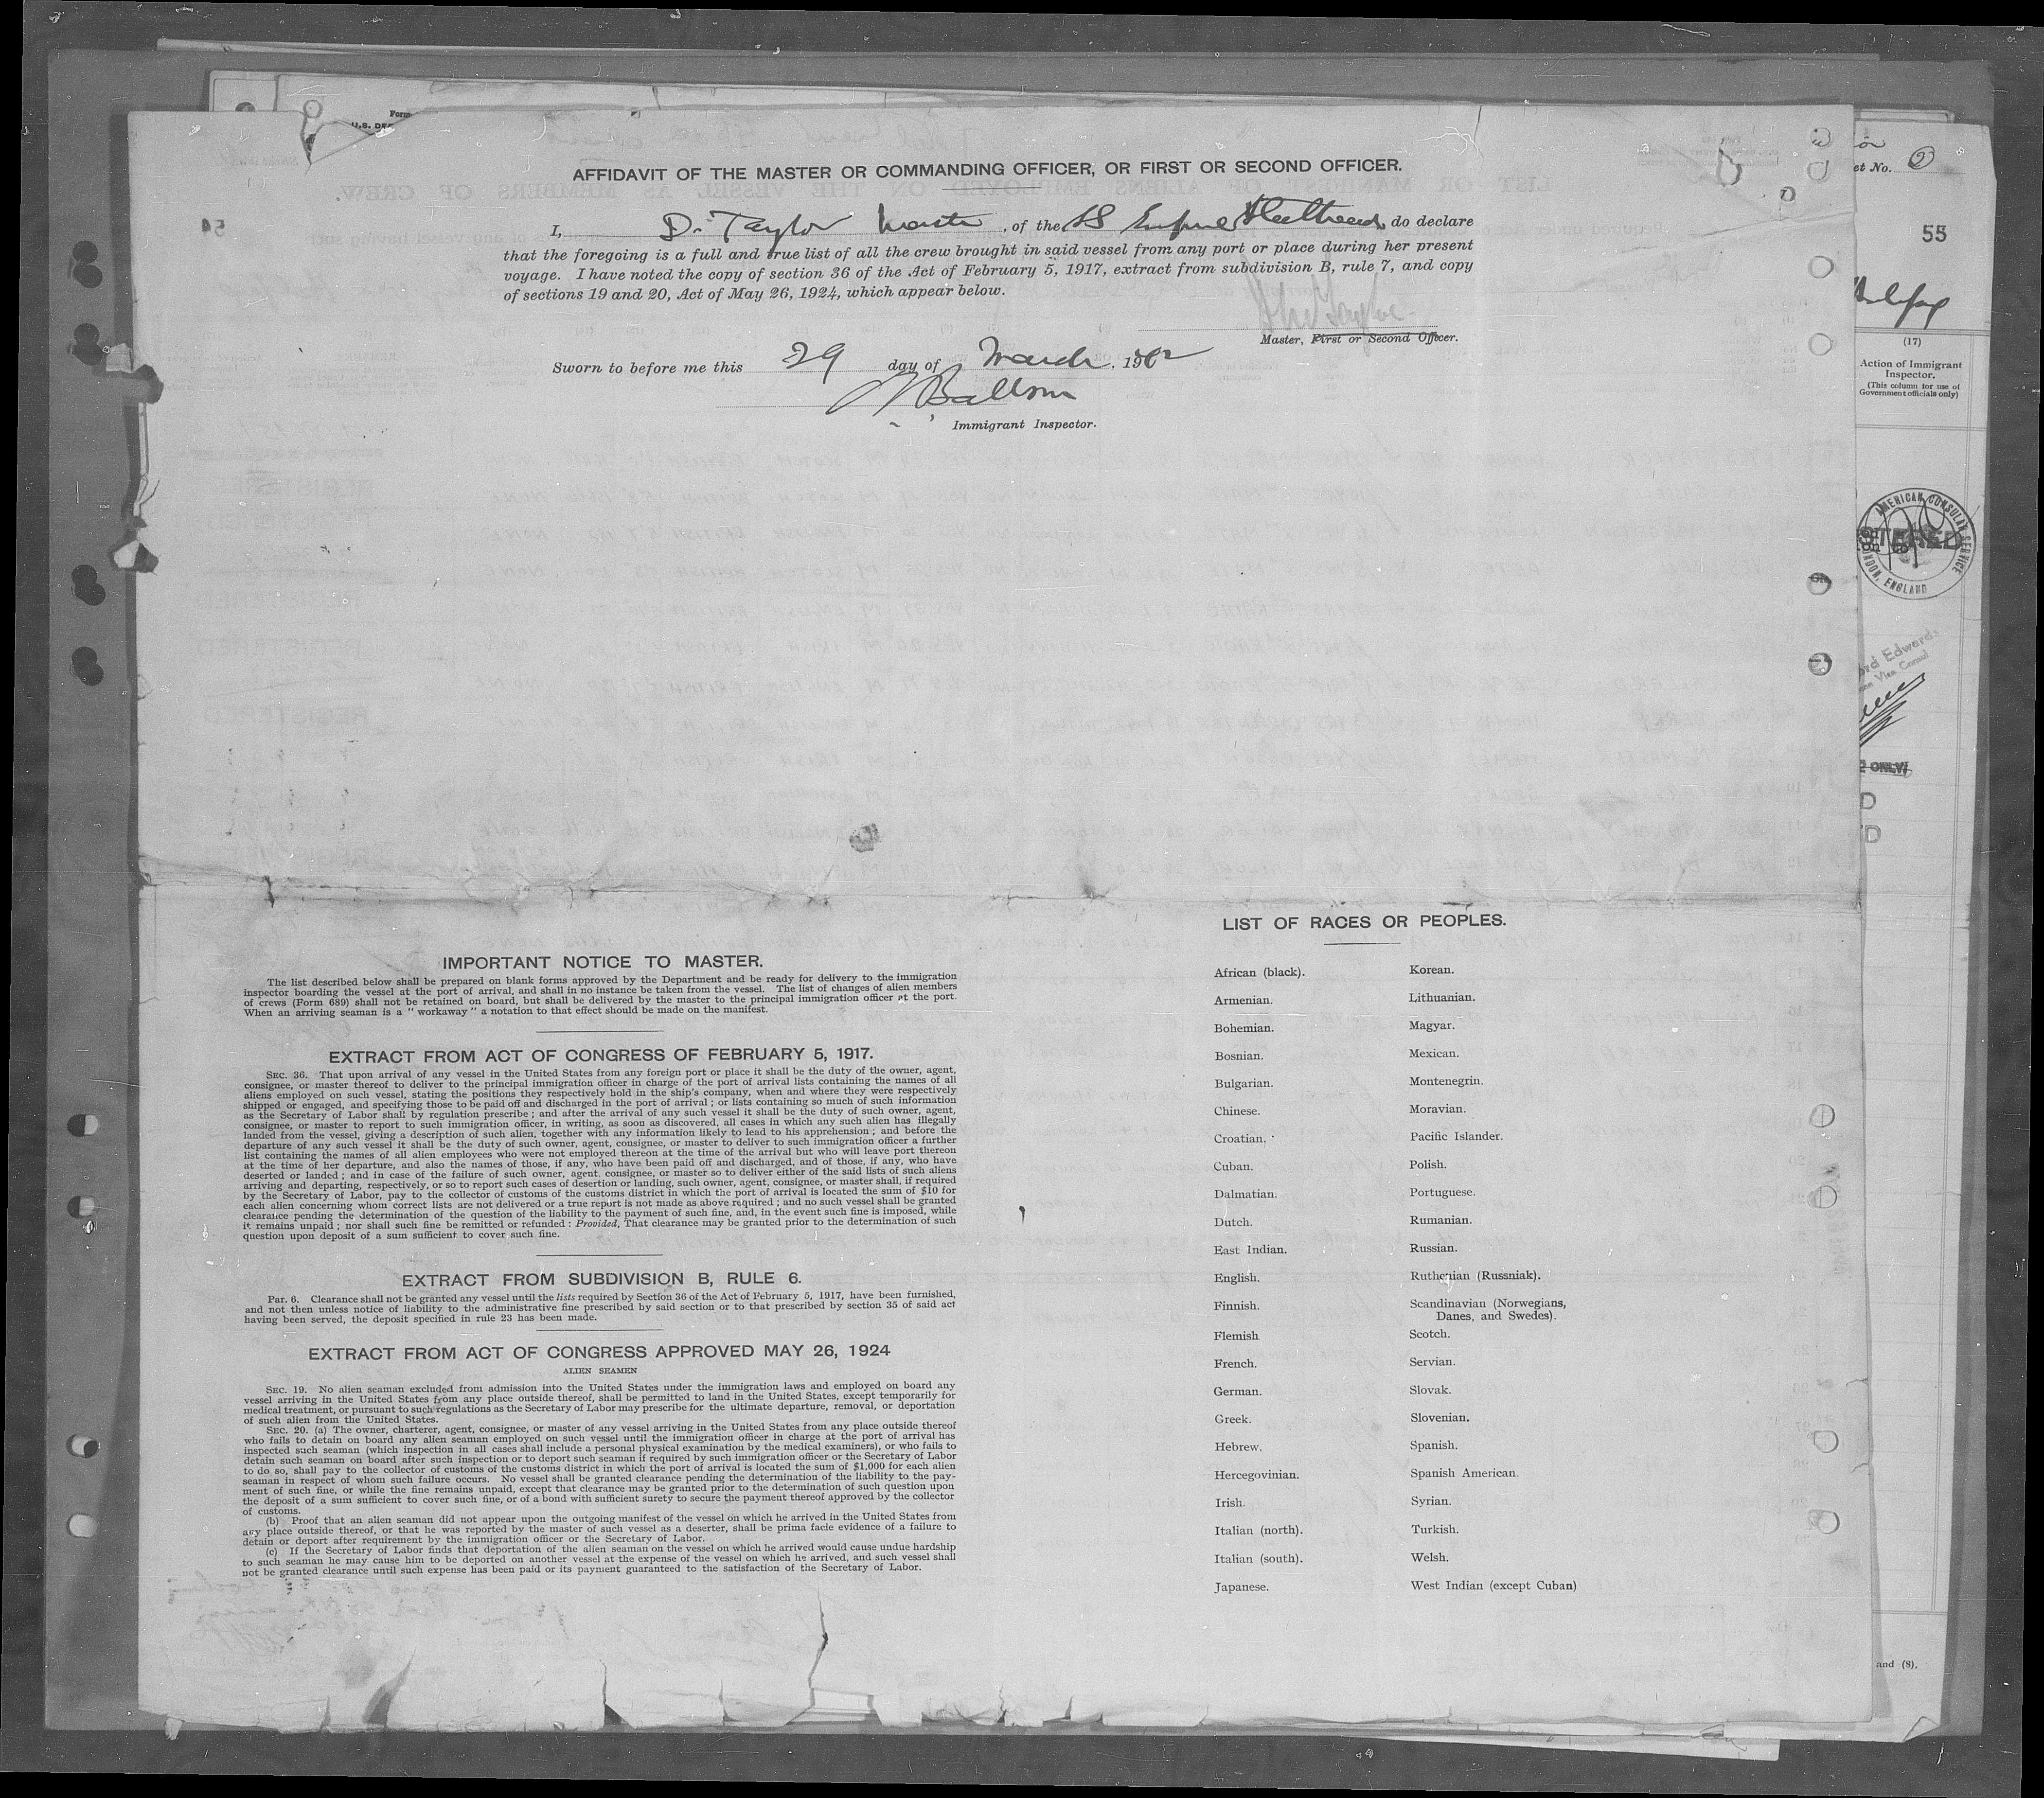 Form
U.S. DE
AFFIDAVIT OF THE MASTER OR COMMANDING OFFICER, OR FIRST OR SECOND OFFICER.
I, D. Taylor Master, of the SS Empire do declare
that the foregoing is a full and true list of all the crew brought in said vessel from any port or place during her present
voyage. I have noted the copy of section 36 of the Act of February 5, 1917, extract from subdivision B, rule 7, and copy
of sections 19 and 20, Act of May 26, 1924, which appear below.
Master, First or Second Officer.
Sworn to before me this 29 day of March, 1942
Immigrant Inspector.
IMPORTANT NOTICE TO MASTER.
The list described below shall be prepared on blank forms approved by the Department and be ready for delivery to the immigration
inspector boarding the vessel at the port of arrival, and shall in no instance be taken from the vessel. The list of changes of alien members
of crews (Form 689) shall not be retained on board, but shall be delivered by the master to the principal immigration officer at the port.
When an arriving seaman is a "workaway" a notation to that effect should be made on the manifest.
EXTRACT FROM ACT OF CONGRESS OF FEBRUARY 5, 1917.
SEC. 36. That upon arrival of any vessel in the United States from any foreign port or place it shall be the duty of the owner, agent,
consignee, or master thereof to deliver to the principal immigration officer in charge of the port of arrival lists containing the names of all
aliens employed on such vessel, stating the positions they respectively hold in the ship's company, when and where they were respectively
shipped or engaged, and specifying those to be paid off and discharged in the port of arrival; or lists containing so much of such information
as the Secretary of Labor shall by regulation prescribe; and after the arrival of any such vessel it shall be the duty of such owner, agent,
consignee, or master to report to such immigration officer, in writing, as soon as discovered, all cases in which any such alien has illegally
landed from the vessel, giving a description of such alien, together with any information likely to lead to his apprehension; and before the
departure of any such vessel it shall be the duty of such owner, agent, consignee, or master to deliver to such immigration officer a further
list containing the names of all alien employees who were not employed thereon at the time of the arrival but who will leave port thereon
at the time of her departure, and also the names of those, if any, who have been paid off and discharged, and of those, if any, who have
deserted or landed; and in case of the failure of such owner, agent, consignee, or master so to deliver either of the said lists of such aliens
arriving and departing, respectively, or so to report such cases of desertion or landing, such owner, agent, consignee, or master shall, if required
by the Secretary of Labor, pay to the collector of customs of the customs district in which the port of arrival is located the sum of $10 for
each alien concerning whom correct lists are not delivered or a true report is not made as above required; and no such vessel shall be granted
clearance pending the determination of the question of the liability to the payment of such fine, and, in the event such fine is imposed, while
it remains unpaid; nor shall such fine be remitted or refunded: Provided, That clearance may be granted prior to the determination of such
question upon deposit of a sum sufficient to cover such fine.
EXTRACT FROM SUBDIVISION B, RULE 6.
Par. 6. Clearance shall not be granted any vessel until the lists required by Section 36 of the Act of February 5, 1917, have been furnished,
and not then unless notice of liability to the administrative fine prescribed by said section or to that prescribed by section 35 of said act
having been served, the deposit specified in rule 23 has been made.
EXTRACT FROM ACT OF CONGRESS APPROVED MAY 26, 1924
ALIEN SEAMEN
SEC. 19. No alien seaman excluded from admission into the United States under the immigration laws and employed on board any
vessel arriving in the United States from any place outside thereof, shall be permitted to land in the United States, except temporarily for
medical treatment, or pursuant to such regulations as the Secretary of Labor may prescribe for the ultimate departure, removal, or deportation
of such alien from the United States.
SEC. 20. (a) The owner, charterer, agent, consignee, or master of any vessel arriving in the United States from any place outside thereof
who fails to detain on board any alien seaman employed on such vessel until the immigration officer in charge at the port of arrival has
inspected such seaman (which inspection in all cases shall include a personal physical examination by the medical examiners), or who fails to
detain such seaman on board after such inspection or to deport such seaman if required by such immigration officer or the Secretary of Labor
to do so, shall pay to the collector of customs of the customs district in which the port of arrival is located the sum of $1,000 for each alien
seaman in respect of whom such failure occurs. No vessel shall be granted clearance pending the determination of the liability to the pay-
ment of such fine, or while the fine remains unpaid, except that clearance may be granted prior to the determination of such question upon
the deposit of a sum sufficient to cover such fine, or of a bond with sufficient surety to secure the payment thereof approved by the collector
of customs.
(b) Proof that an alien seaman did not appear upon the outgoing manifest of the vessel on which he arrived in the United States from
any place outside thereof, or that he was reported by the master of such vessel as a deserter, shall be prima facie evidence of a failure to
detain or deport after requirement by the immigration officer or the Secretary of Labor.
(c) If the Secretary of Labor finds that deportation of the alien seaman on the vessel on which he arrived would cause undue hardship
to such seaman he may cause him to be deported on another vessel at the expense of the vessel on which he arrived, and such vessel shall
not be granted clearance until such expense has been paid or its payment guaranteed to the satisfaction of the Secretary of Labor.
LIST OF RACES OR PEOPLES.
African (black).
Armenian.
Bohemian.
Bosnian.
Bulgarian.
Chinese.
Croatian.
Cuban.
Dalmatian.
Dutch.
East Indian.
English.
Finnish.
Flemish
French.
German.
Greek.
Hebrew.
Hercegovinian.
Irish.
Italian (north).
Italian (south).
Japanese.
Korean.
Lithuanian.
Magyar.
Mexican.
Montenegrin.
Moravian.
Pacific Islander.
Polish.
Portuguese.
Rumanian.
Russian.
Ruthenian (Russniak).
Scandinavian (Norwegians,
Danes, and Swedes).
Scotch.
Servian.
Slovak.
Slovenian.
Spanish.
Spanish American.
Syrian.
Turkish.
Welsh.
West Indian (except Cuban)
et No. 2
55
(17)
Action of Immigrant
Inspector.
(This column for use of
Government officials only)
AMERICAN CONSULAR SERVICE
LONDON, ENGLAND
ord Edwards
Vice Consul
ONLY
and (8).